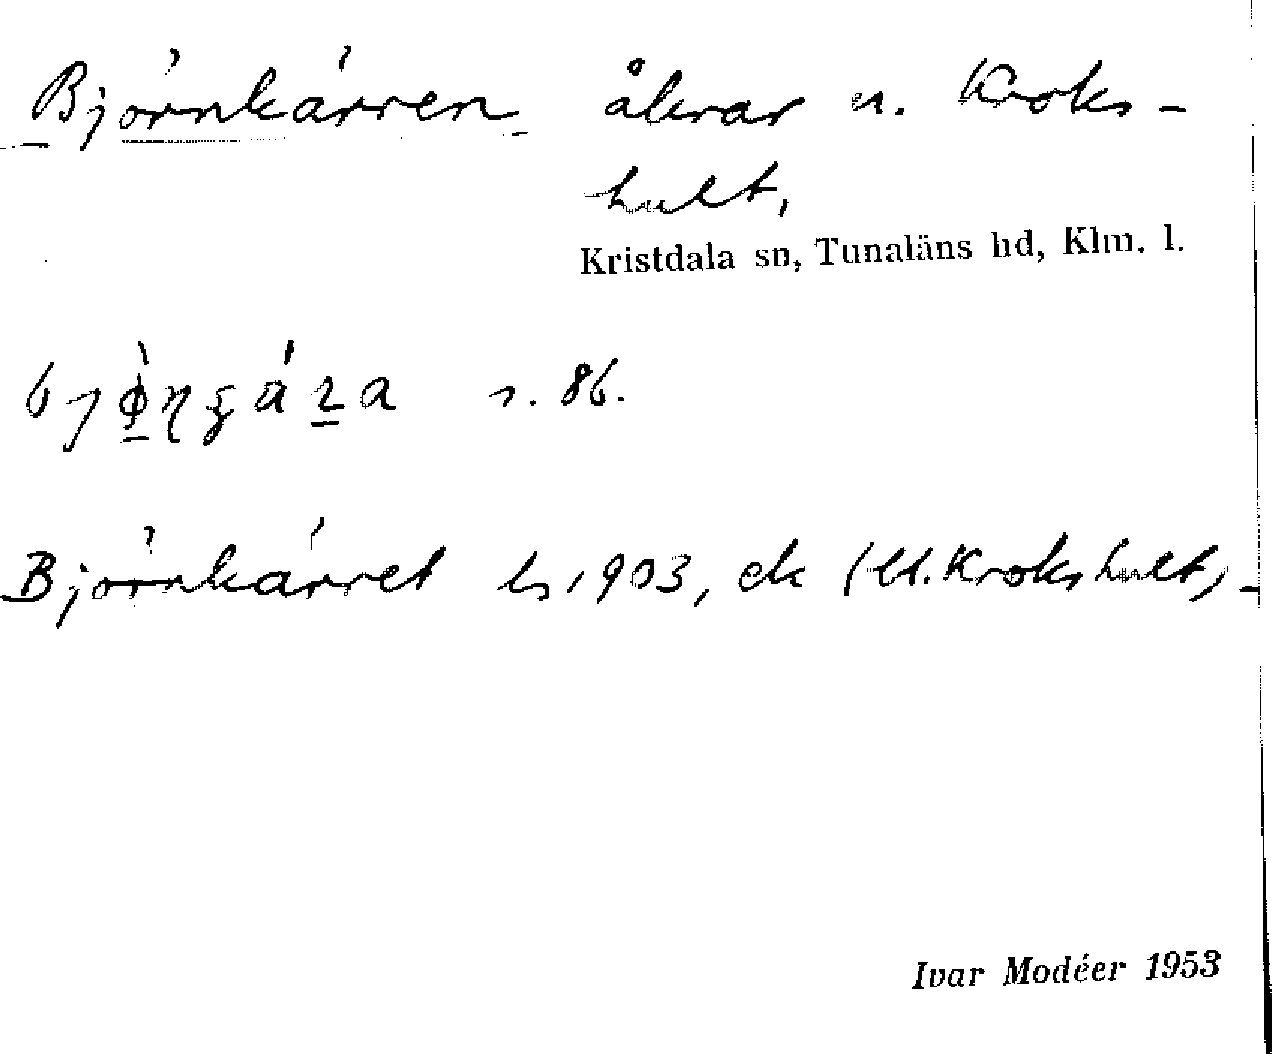 Björnkärren åkrar n. Kroks-
hult,
Kristdala sn, Tunaläns hd, Klm. l.
s. 86.
Björnkärret ls 1903, ek (Ll. Krokshult)-
Ivar Modéer 1953